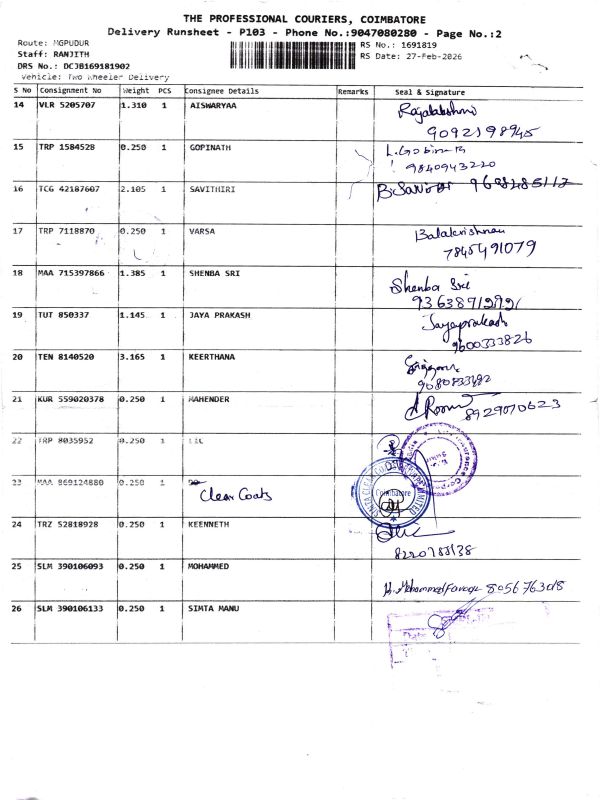 THE PROFESSIONAL COURIERS, COIMBATORE
Delivery Runsheet - P103 - Phone No.:9047080280 - Page No.:2
Route: MGPUDUR
RS No.: 1691819
Staff: RANJITH
RS Date: 27-Feb-2026
DRS No.: DCJB169181902
Vehicle: Two Wheeler Delivery
S No Consignment No Weight PCS Consignee Details Remarks Seal & Signature
14 VLR 5205707 1.310 1 AISWARYAA Rajalakshmi
9092198945
15 TRP 1584528 0.250 1 GOPINATH
9840943220
16 TCG 42187607 2.105 1 SAVITHIRI
17 TRP 7118870 0.250 1 VARSA Balakrishnan
7845491079
18 MAA 715397866 1.385 1 SHENBA SRI Shenba Sri
19 TUT 850337 1.145 1 JAYA PRAKASH Jayaprakash
9600333826
20 TEN 8140520 3.165 1 KEERTHANA
21 KUR 559020378 0.250 1 MAHENDER 8929070623
22 TRP 8035952 0.250 1 LIC
23 MAA 869124880 0.250 1
Clear Coats
Coimbatore
24 TRZ 52818928 0.250 1 KEENNETH
25 SLM 390106093 0.250 1 MOHAMMED
26 SLM 390106133 0.250 1 SIMTA MANU